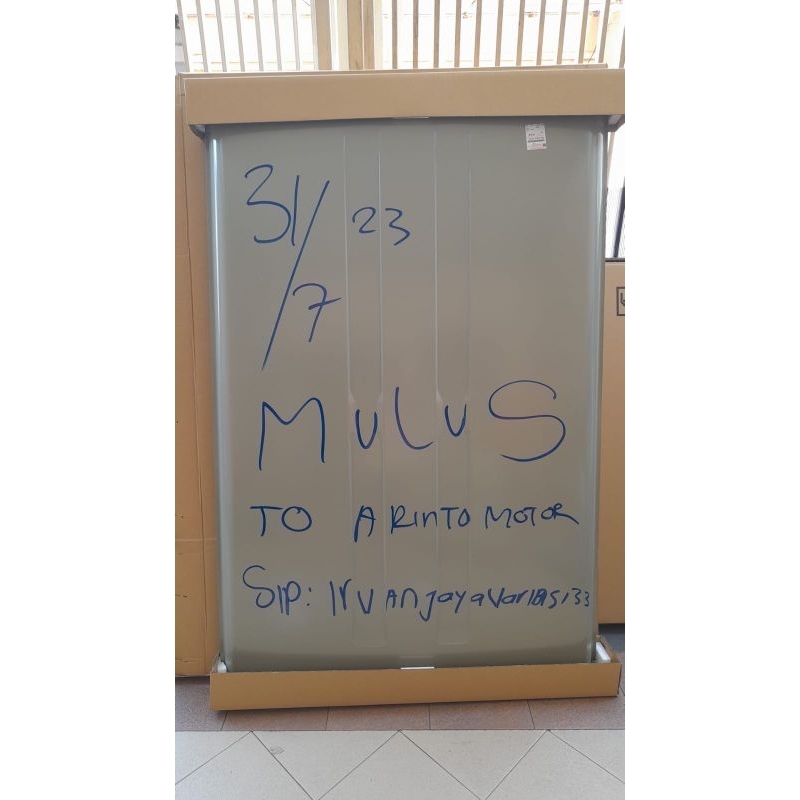 31/7 23
MULUS
TO ARINTO MOTOR
SIP: IrVAnjayaVariasi33